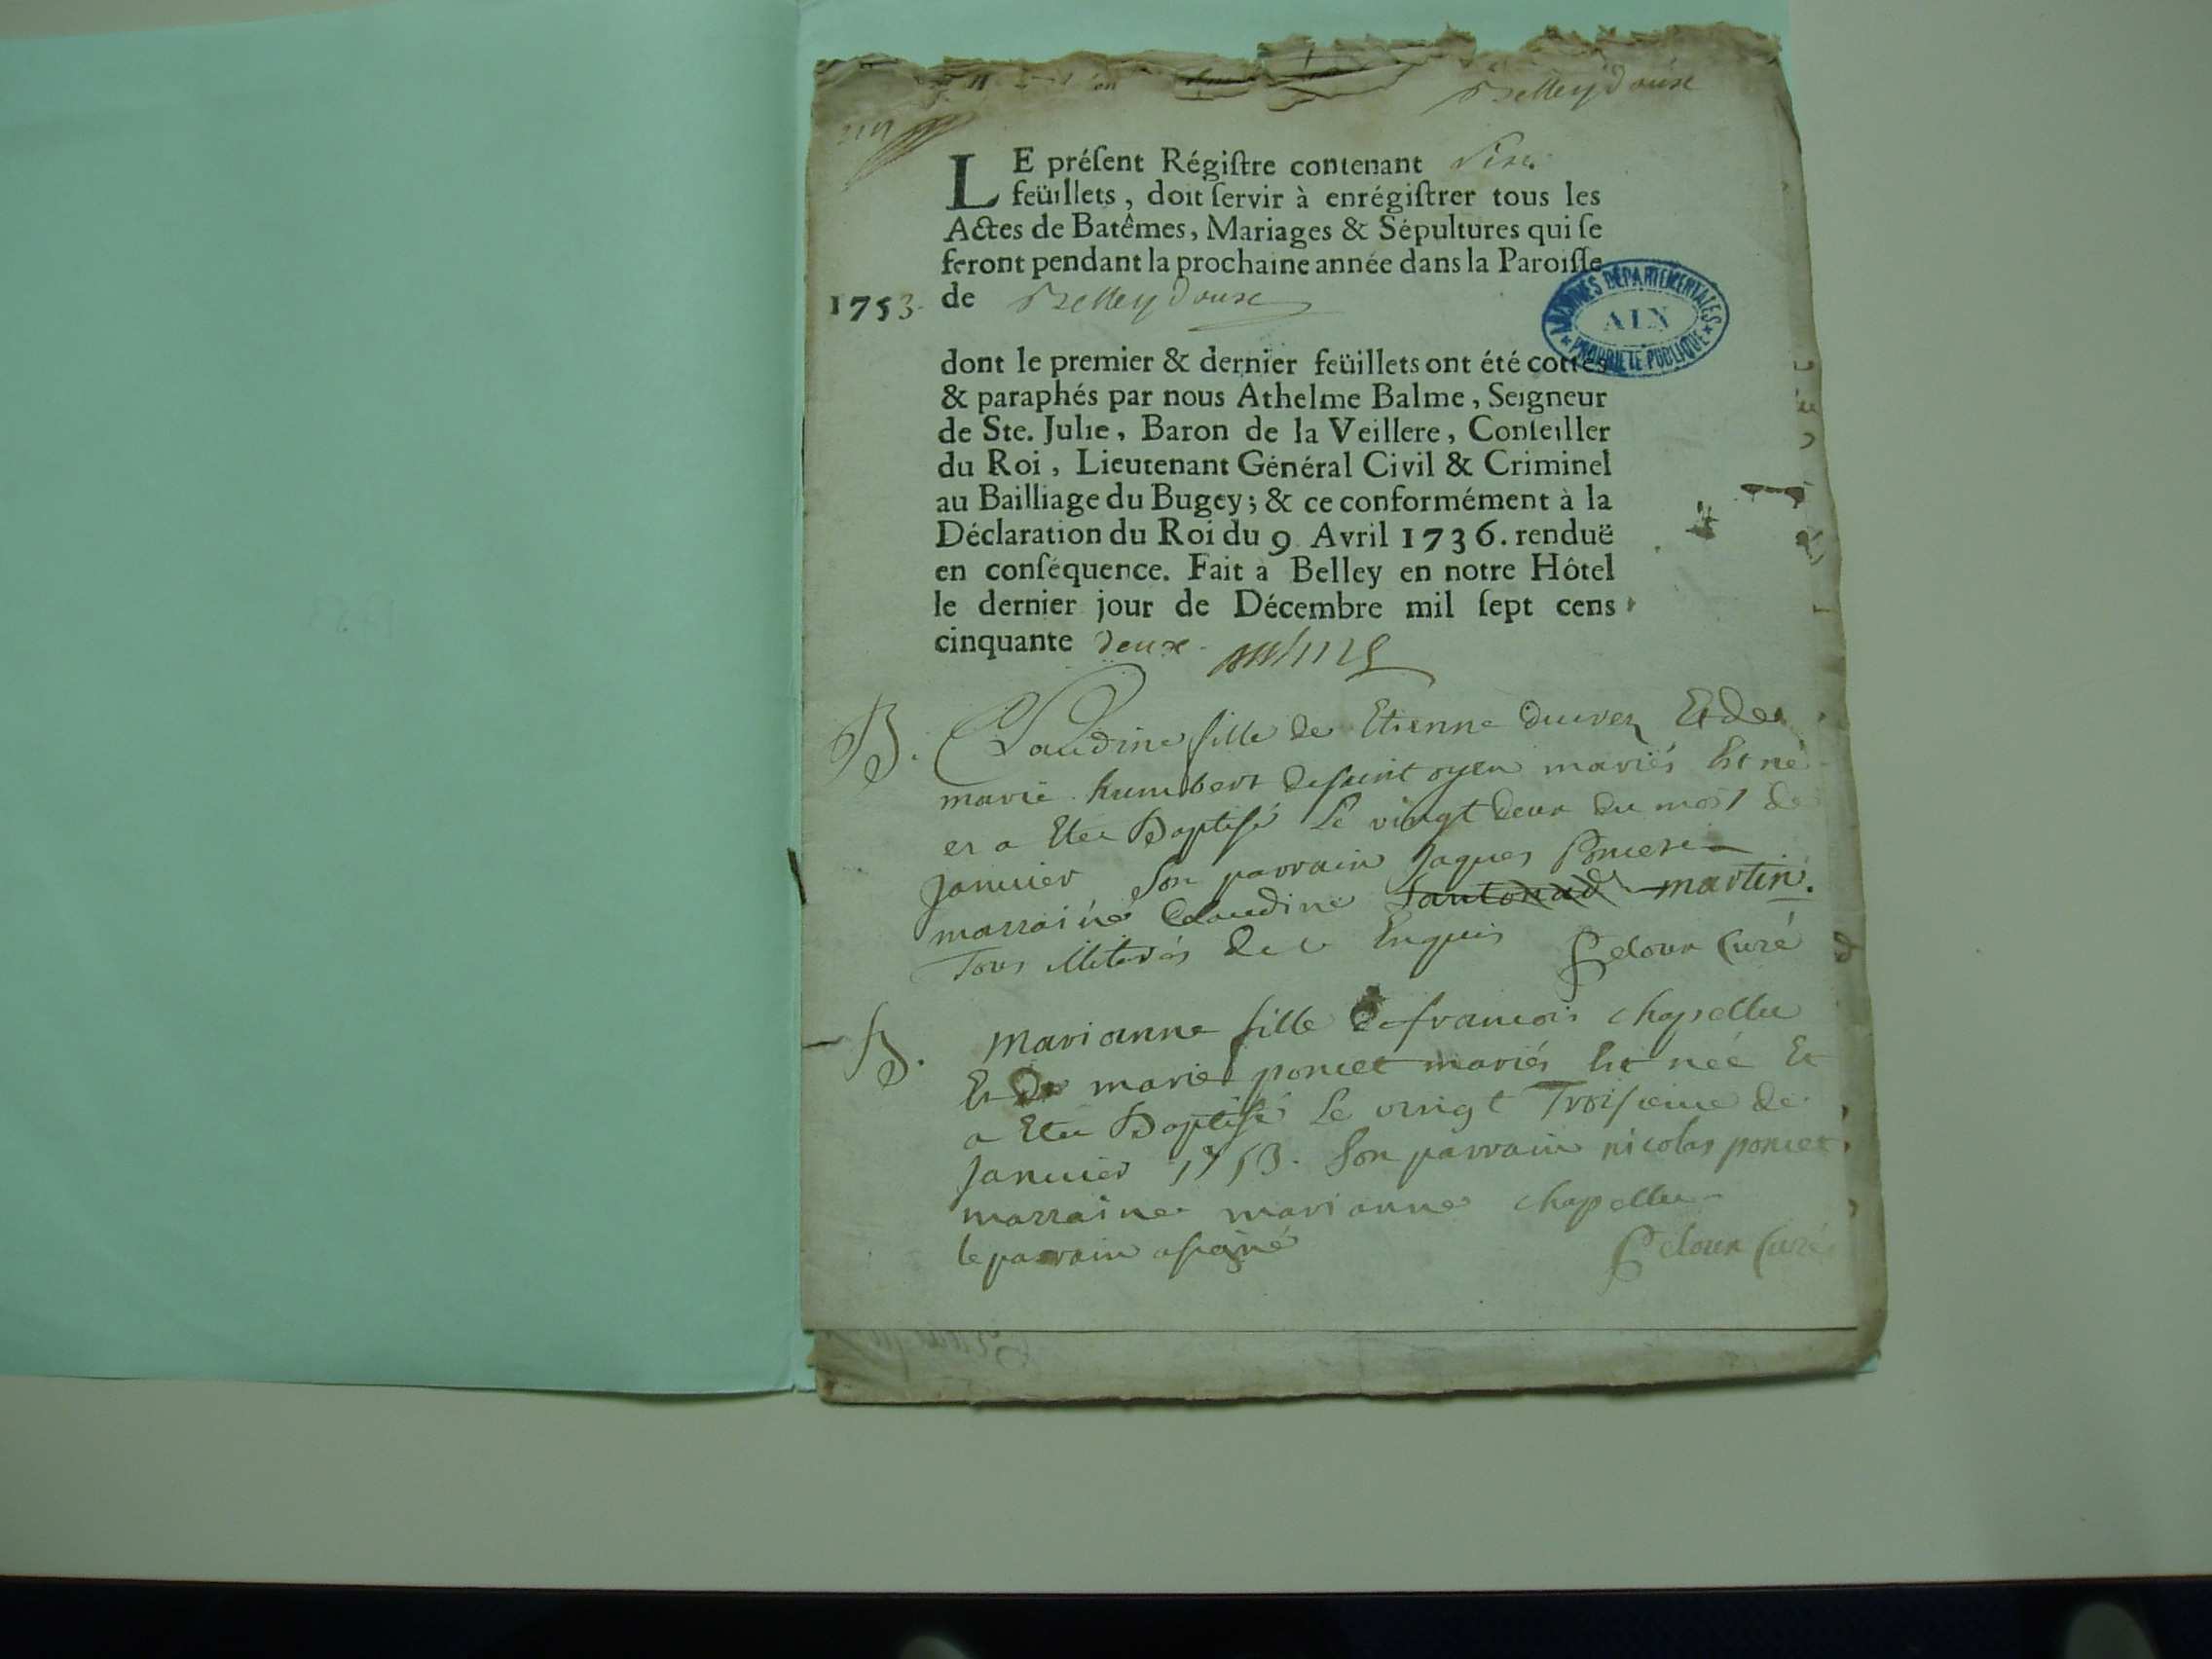 Belleydoux
LE préſent Régiſtre contenant
feüillets, doit ſervir à enrégiſtrer tous les
Actes de Batêmes, Mariages & Sépultures qui ſe
feront pendant la prochaine année dans la Paroiſſe
1753. de Belleydoux
ARCHIVES DÉPARTEMENTALES
AIN
PROPRIÉTÉ PUBLIQUE
dont le premier & dernier feüillets ont été cottés
& paraphés par nous Athelme Balme, Seigneur
de Ste. Julie, Baron de la Veillere, Conſeiller
du Roi, Lieutenant Général Civil & Criminel
au Bailliage du Bugey; & ce conformément à la
Déclaration du Roi du 9 Avril 1736. renduë
en conſéquence. Fait à Belley en notre Hôtel
le dernier jour de Décembre mil ſept cens
cinquante deux.
B. Claudine fille de Etienne Et de
marie humbert mariés Est né
et a Ete Baptisé Le vingt deux du mois de
Janvier Son parrain Jaques
marraine Claudine martin.
Tous illiterés de ce Enquis curé
B. Marianne fille de francois chapellu
Et de marie poncet mariés Est née Et
a Ete Baptisé Le vingt Troisieme de
Janvier 1753. Son parrain nicolas poncet
marraine marianne chapellu
le parrain a signé curé